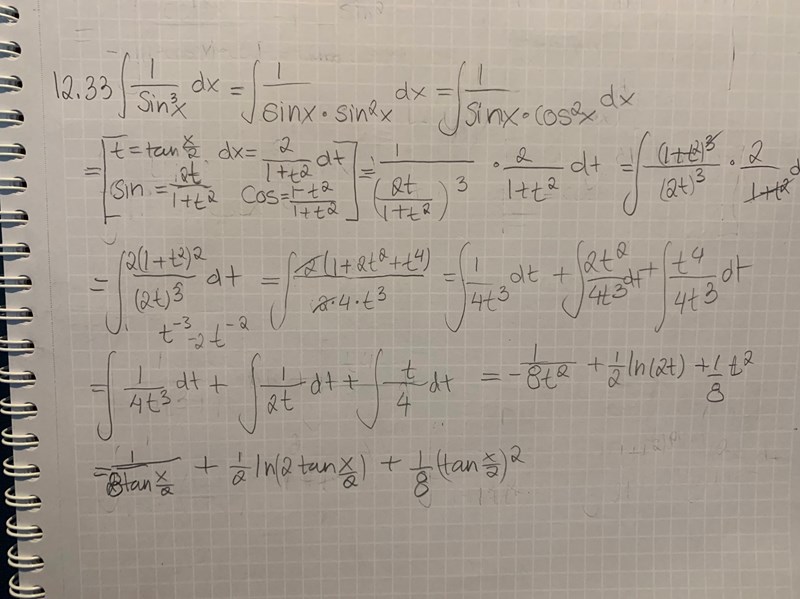 12.33 ∫ 1/Sin³x dx = ∫ 1/(sinx · sin²x) dx = ∫ 1/(Sinx · cos²x) dx
= [t = tan x/2 dx = 2/(1+t²) dt sin = 2t/(1+t²) cos = (1-t²)/(1+t²)] = 1/(2t/(1+t²))³ · 2/(1+t²) dt = ∫ (1+t²)³/(2t)³ · 2/(1+t²) d
= ∫ 2(1+t²)²/(2t)³ dt = ∫ 2(1+2t²+t⁴)/(2·4·t³) = ∫ 1/4t³ dt + ∫ 2t²/4t³ dt + ∫ t⁴/4t³ dt
t⁻³ -2t⁻²
= ∫ 1/4t³ dt + ∫ 1/2t dt + ∫ t/4 dt = -1/8t² + 1/2 ln(2t) + 1/8 t²
= 1/8tan x/2 + 1/2 ln(2 tan x/2) + 1/8 (tan x/2)²